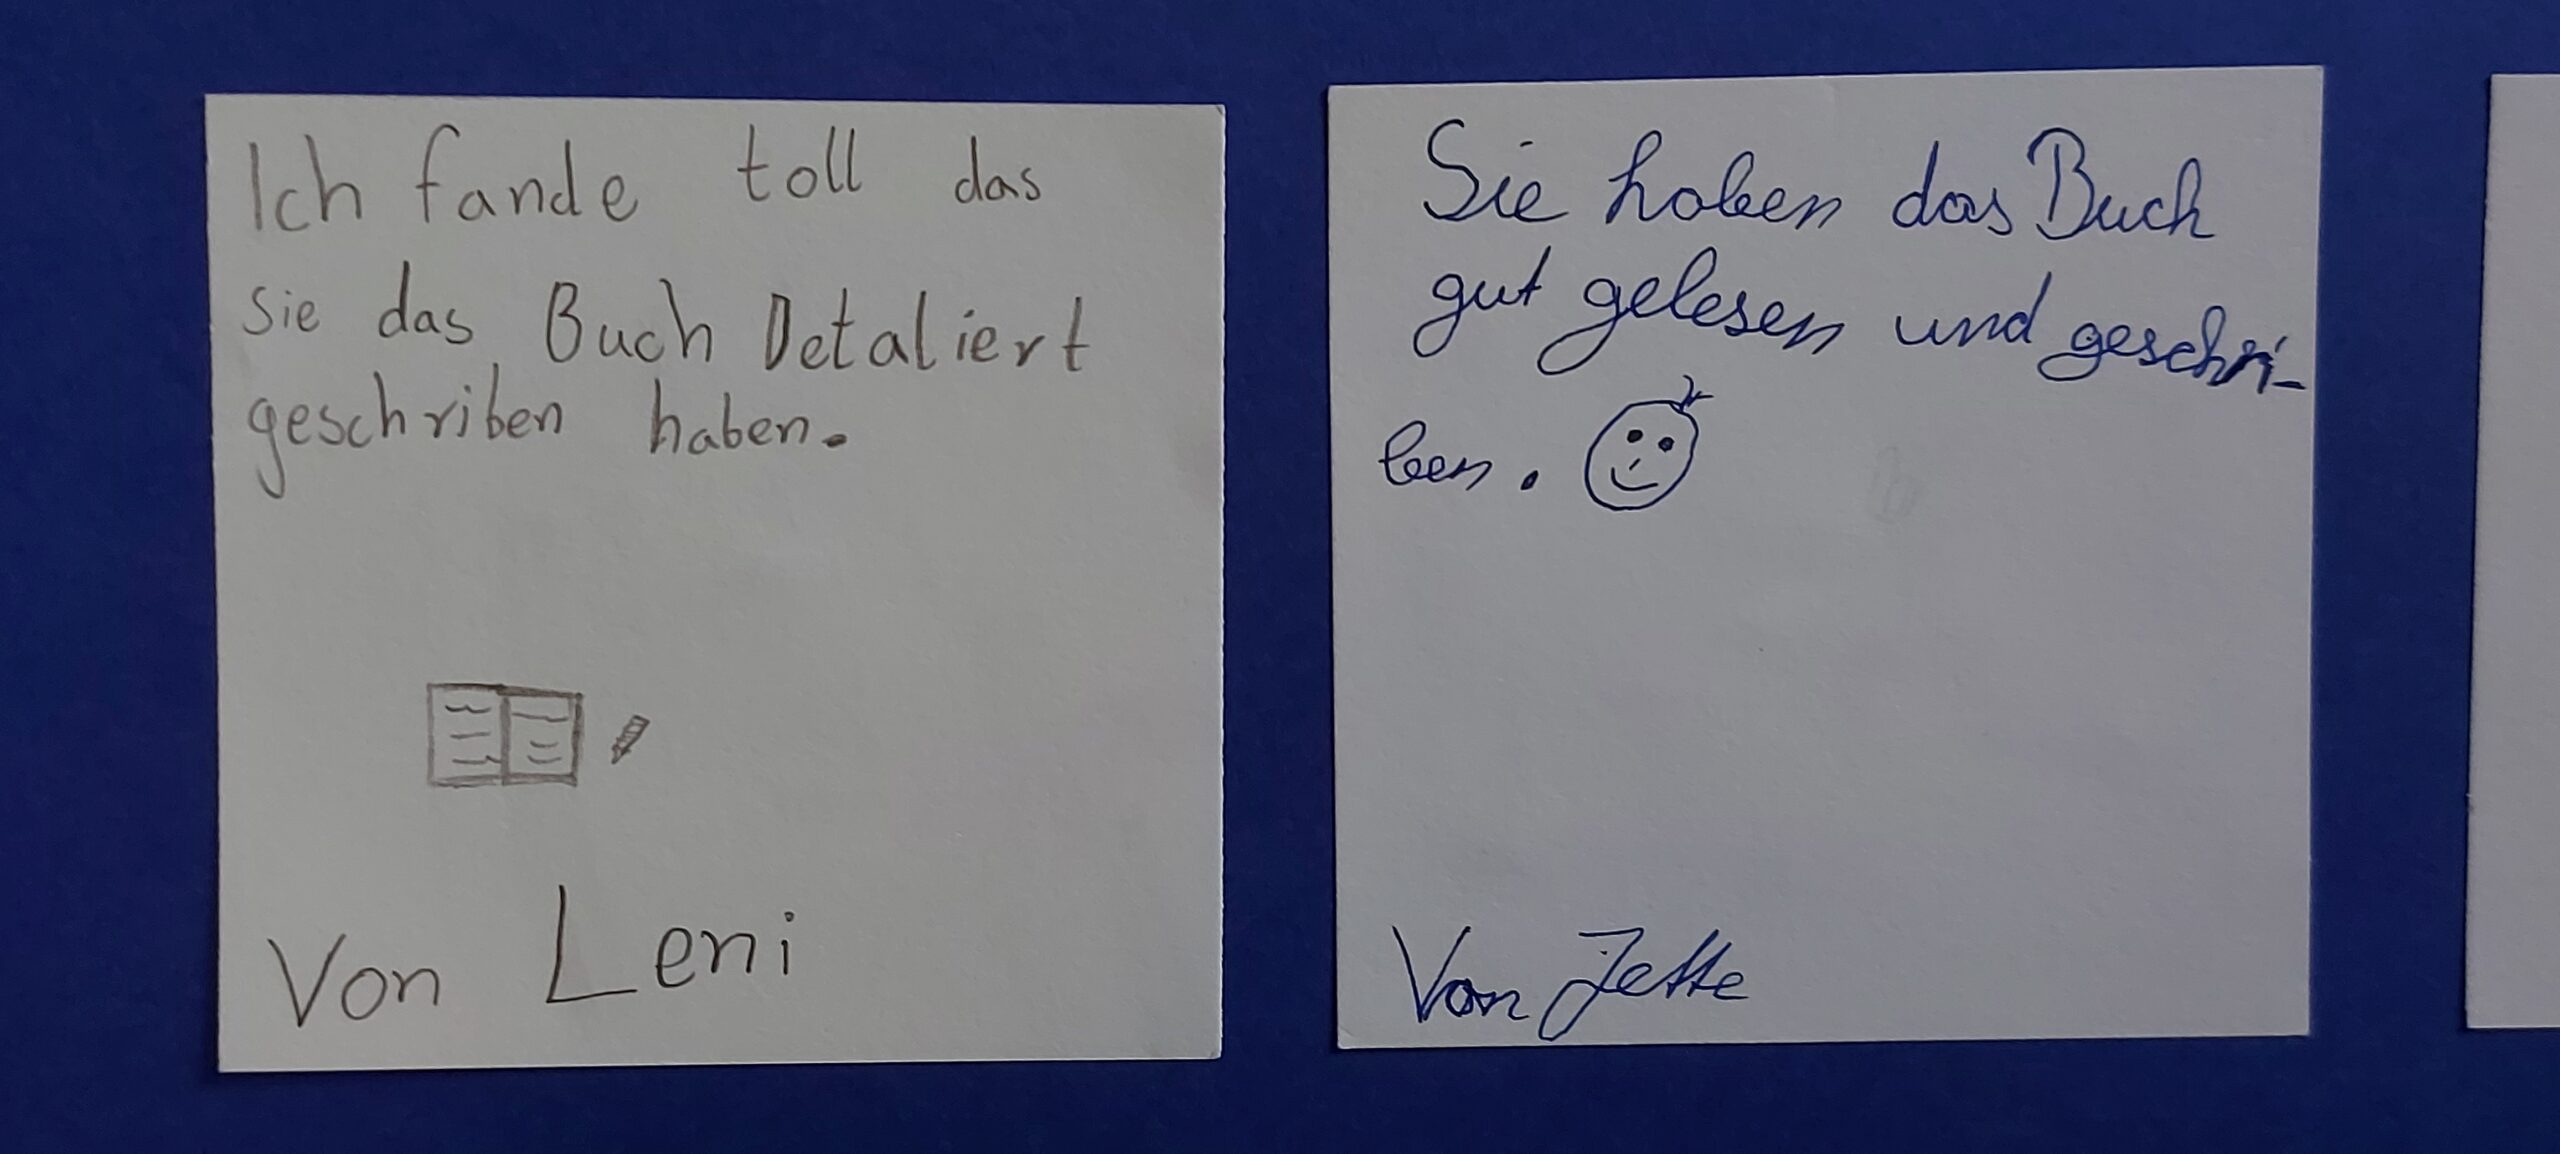 Ich fande toll das
sie das Buch Detaliert
geschriben haben.
Von Leni
Sie haben das Buch
gut gelesen und geschri-
ben.
Von Jette